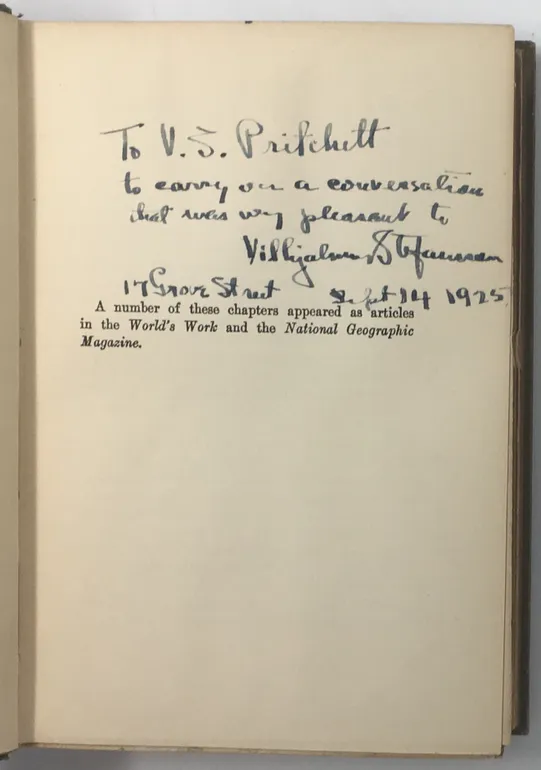 To V. S. Pritchett
to carry on a conversation
that was very pleasant to
Vilhjalmur Stefansson
17 Grove Street Sept 14 1925
A number of these chapters appeared as articles
in the World's Work and the National Geographic
Magazine.